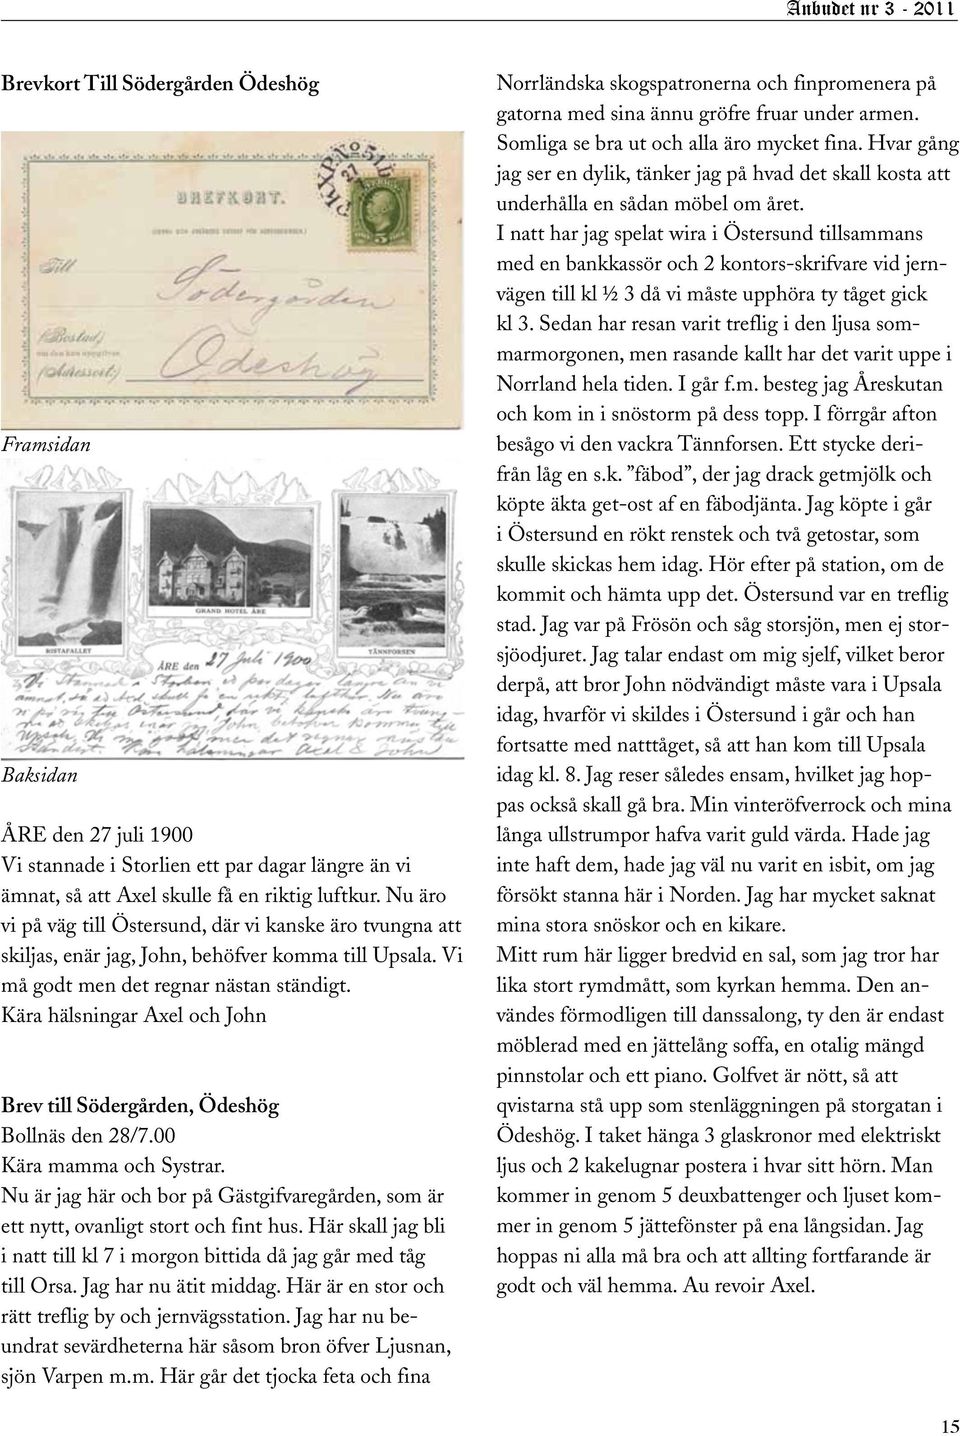 Anbudet nr 3 - 2011
Brevkort Till Södergården Ödeshög
PKXP. No 51
27
SVERIGE
5
BREFKORT.
Till
Södergården
(Bostad)
(Adressort:)
Ödeshög
Framsidan
RISTAFALLET
GRAND HOTEL ÅRE
TÄNNFORSEN
ÅRE den 27 Juli 1900
Vi stannade i Storlien ett par dagar längre än vi
ämnat, så att Axel skulle få en riktig luftkur. Nu äro
vi på väg till Östersund, där vi kanske äro tvung-
na att skiljas, enär jag, John, behöfver komma till
Upsala. Vi må godt men det regnar nästan
ständigt. Kära hälsningar Axel & John
Baksidan
ÅRE den 27 juli 1900
Vi stannade i Storlien ett par dagar längre än vi
ämnat, så att Axel skulle få en riktig luftkur. Nu äro
vi på väg till Östersund, där vi kanske äro tvungna att
skiljas, enär jag, John, behöfver komma till Upsala. Vi
må godt men det regnar nästan ständigt.
Kära hälsningar Axel och John
Brev till Södergården, Ödeshög
Bollnäs den 28/7.00
Kära mamma och Systrar.
Nu är jag här och bor på Gästgifvaregården, som är
ett nytt, ovanligt stort och fint hus. Här skall jag bli
i natt till kl 7 i morgon bittida då jag går med tåg
till Orsa. Jag har nu ätit middag. Här är en stor och
rätt treflig by och jernvägsstation. Jag har nu be-
undrat sevärdheterna här såsom bron öfver Ljusnan,
sjön Varpen m.m. Här går det tjocka feta och fina
Norrländska skogspatronerna och finpromenera på
gatorna med sina ännu gröfre fruar under armen.
Somliga se bra ut och alla äro mycket fina. Hvar gång
jag ser en dylik, tänker jag på hvad det skall kosta att
underhålla en sådan möbel om året.
I natt har jag spelat wira i Östersund tillsammans
med en bankkassör och 2 kontors-skrifvare vid jern-
vägen till kl ½ 3 då vi måste upphöra ty tåget gick
kl 3. Sedan har resan varit treflig i den ljusa som-
marmorgonen, men rasande kallt har det varit uppe i
Norrland hela tiden. I går f.m. besteg jag Åreskutan
och kom in i snöstorm på dess topp. I förrgår afton
besågo vi den vackra Tännforsen. Ett stycke deri-
från låg en s.k. ”fäbod”, der jag drack getmjölk och
köpte äkta get-ost af en fäbodjänta. Jag köpte i går
i Östersund en rökt renstek och två getostar, som
skulle skickas hem idag. Hör efter på station, om de
kommit och hämta upp det. Östersund var en treflig
stad. Jag var på Frösön och såg storsjön, men ej stor-
sjöodjuret. Jag talar endast om mig sjelf, vilket beror
derpå, att bror John nödvändigt måste vara i Upsala
idag, hvarför vi skildes i Östersund i går och han
fortsatte med natttåget, så att han kom till Upsala
idag kl. 8. Jag reser således ensam, hvilket jag hop-
pas också skall gå bra. Min vinteröfverrock och mina
långa ullstrumpor hafva varit guld värda. Hade jag
inte haft dem, hade jag väl nu varit en isbit, om jag
försökt stanna här i Norden. Jag har mycket saknat
mina stora snöskor och en kikare.
Mitt rum här ligger bredvid en sal, som jag tror har
lika stort rymdmått, som kyrkan hemma. Den an-
vändes förmodligen till danssalong, ty den är endast
möblerad med en jättelång soffa, en otalig mängd
pinnstolar och ett piano. Golfvet är nött, så att
qvistarna stå upp som stenläggningen på storgatan i
Ödeshög. I taket hänga 3 glaskronor med elektriskt
ljus och 2 kakelugnar postera i hvar sitt hörn. Man
kommer in genom 5 deuxbattenger och ljuset kom-
mer in genom 5 jättefönster på ena långsidan. Jag
hoppas ni alla må bra och att allting fortfarande är
godt och väl hemma. Au revoir Axel.
15